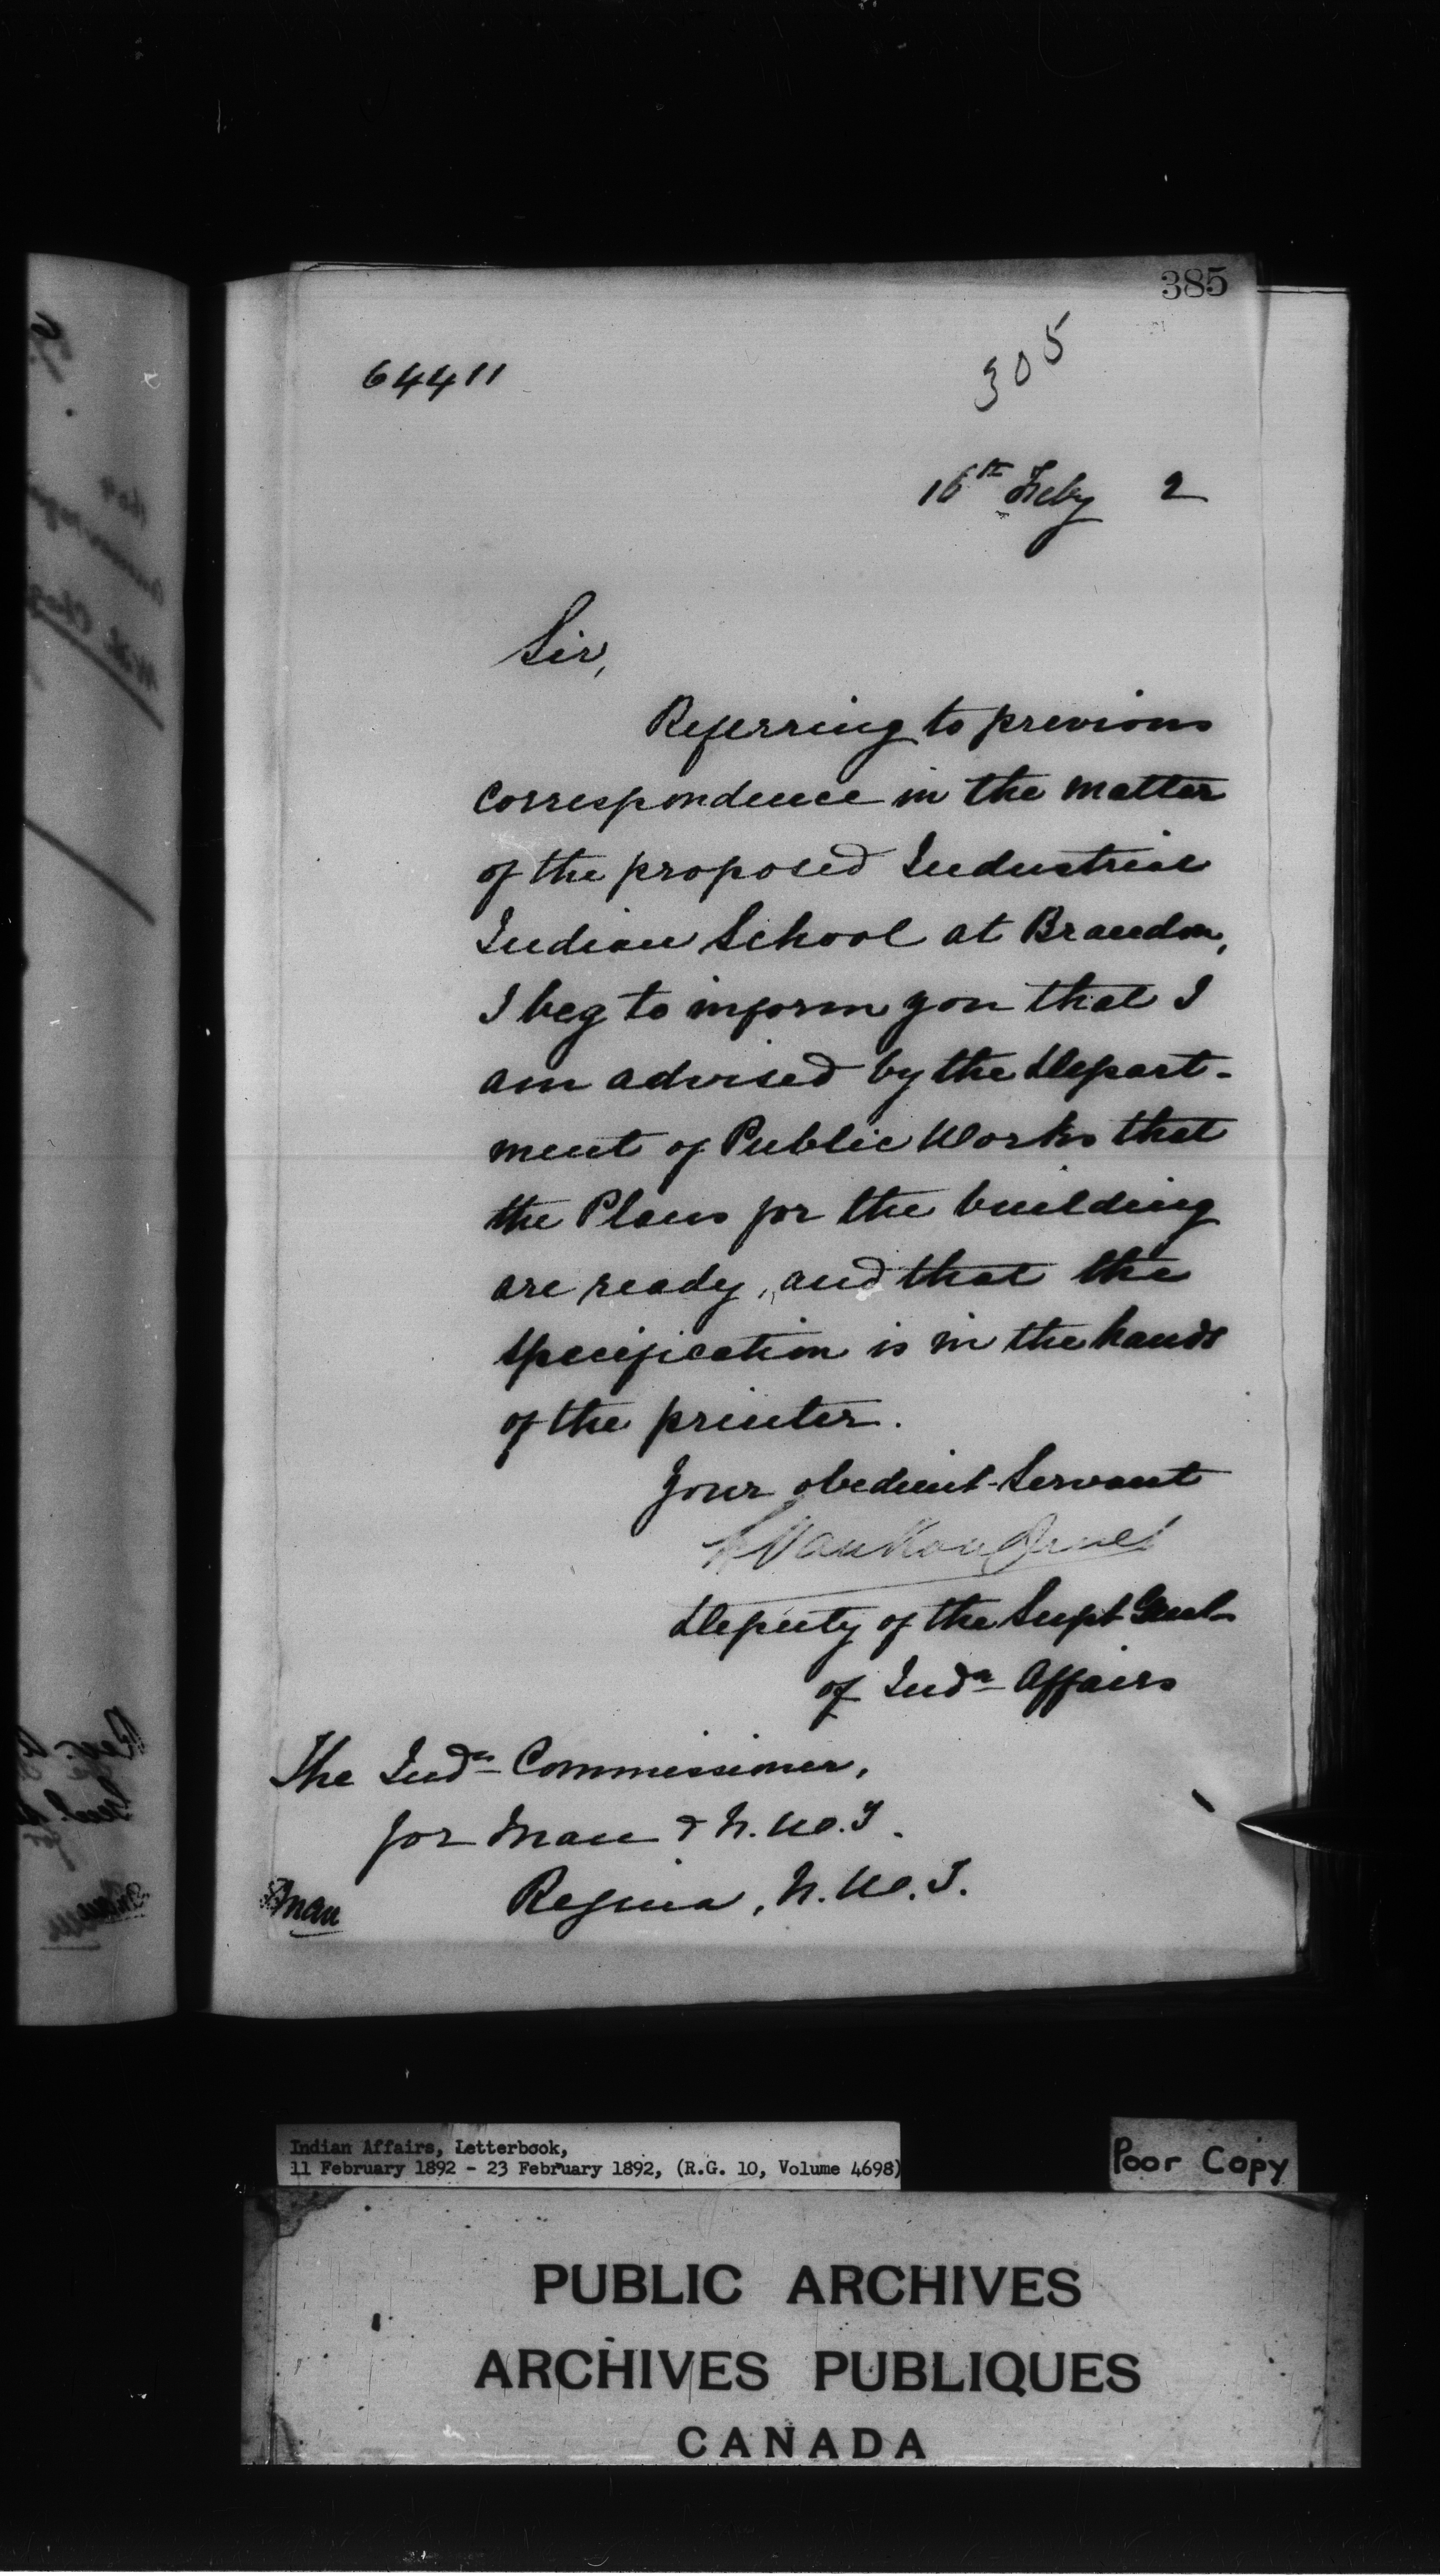 385
305
64411
16th Feby 2
Sir,
Referring to previous
correspondence in the matter
of the proposed Industrial
Indian School at Brandon,
I beg to inform you that I
am advised by the Depart-
ment of Public Works that
the Plans for the building
are ready, and that the
specification is in the hands
of the printer.
Your obedient Servant
L VanKoughnet
Deputy of the Supt Genl
of Indn Affairs
The Indn Commissioner,
for Man & N.W.T.
Regina, N.W.T.
Indian Affairs, Letterbook,
11 February 1892 - 23 February 1892, (R.G. 10, Volume 4698)
Poor Copy
PUBLIC ARCHIVES
ARCHIVES PUBLIQUES
CANADA